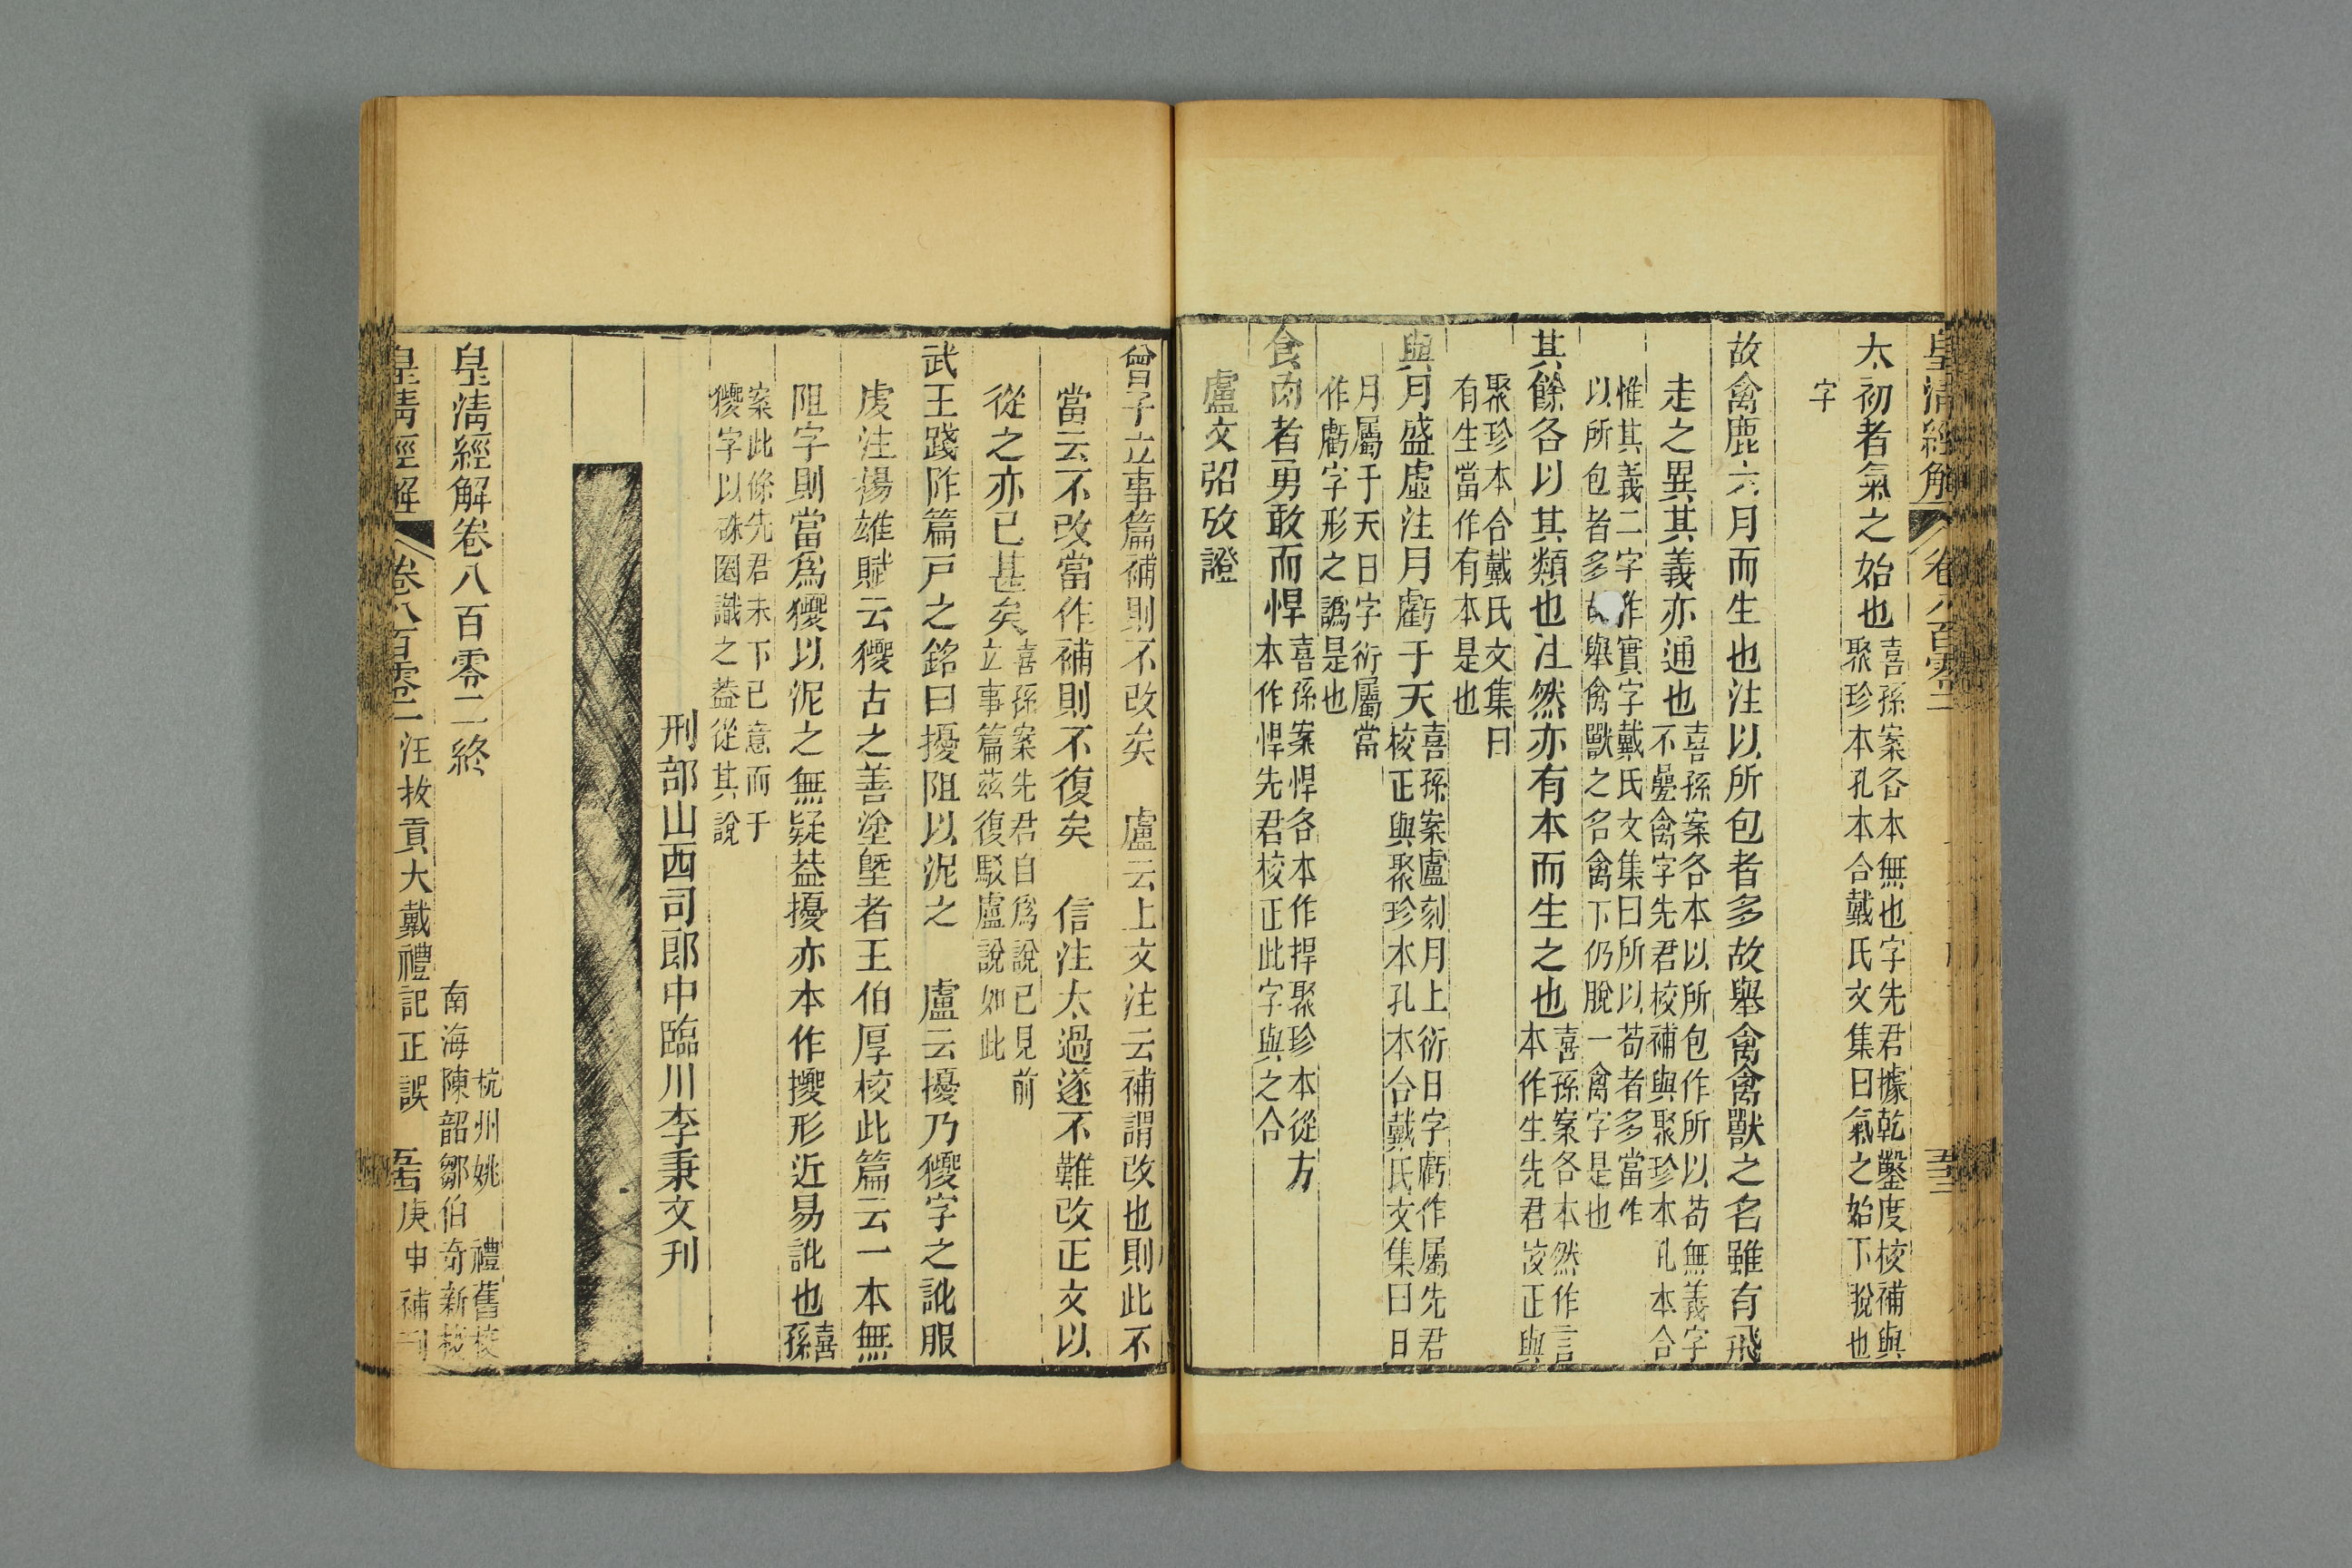 皇清經解 卷八百零二 五十三
太初者氣之始也喜孫案各本無也字先君據乾鑿度校補與
聚珍本孔本合戴氏文集曰氣之始下脫也
字
故禽鹿六月而生也注以所包者多故舉禽禽獸之名雖有飛
走之異其義亦通也喜孫案各本以所包作所以苟無義字
不疊禽字先君校補與聚珍本孔本合
惟其義二字作實字戴氏文集曰所以苟者多當作
以所包者多 舉禽獸之名禽下仍脫一禽字是也
其餘各以其類也注然亦有本而生之也喜孫案各本然作言
本作生先君校正與
聚珍本合戴氏文集曰
有生當作有本是也
與月盛虛注月虧于天喜孫案盧刻月上衍日字虧作屬先君
校正與聚珍本孔本合戴氏文集曰日
月屬于天日字衍屬當
作虧字形之譌是也
食肉者勇敢而悍喜孫案悍各本作捍聚珍本從方
本作悍先君校正此字與之合
盧文弨攷證
曾子立事篇補則不改矣 盧云上文注云補謂改也則此不
當云不改當作補則不復矣 信注太過遂不難改正文以
從之亦已甚矣喜孫案先君自爲說已見前
立事篇茲復駁盧說如此
武王踐阼篇戸之銘曰擾阻以泥之 盧云擾乃獿字之訛服
虔注揚雄賦云獿古之善塗塈者王伯厚校此篇云一本無
阻字則當爲獿以泥之無疑葢擾亦本作擾形近易訛也喜
孫
案此條先君未下己意而于
獿字以硃圈識之葢從其說
刑部山西司郎中臨川李秉文刊
皇清經解卷八百零二終
杭州姚 禮舊校
南海陳韶鄒伯奇新校
皇清經解 卷八百零二 汪拔貢大戴禮記正誤 五十四 庚申補刊